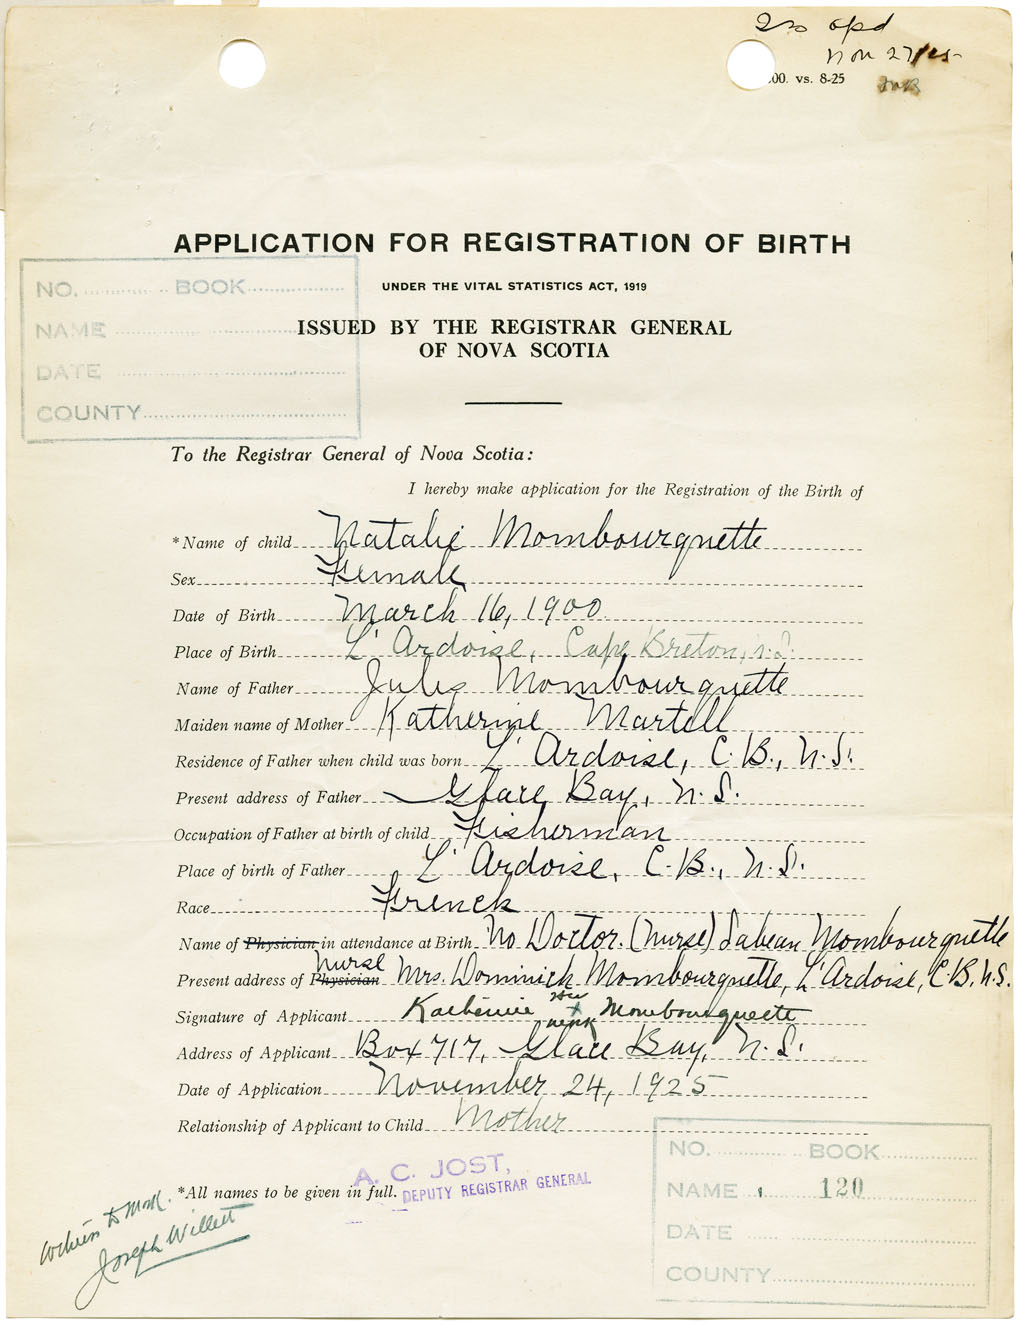 apd
Nov 27/25
00. vs. 8-25
APPLICATION FOR REGISTRATION OF BIRTH
UNDER THE VITAL STATISTICS ACT, 1919
ISSUED BY THE REGISTRAR GENERAL
OF NOVA SCOTIA
NO. BOOK
NAME
DATE
COUNTY
To the Registrar General of Nova Scotia:
I hereby make application for the Registration of the Birth of
*Name of child Natalie Mombourquette
Sex Female
Date of Birth March 16, 1900
Place of Birth L'Ardoise, Cape Breton, N.S.
Name of Father Jules Mombourquette
Maiden name of Mother Katherine Martell
Residence of Father when child was born L'Ardoise, C.B., N.S.
Present address of Father Glace Bay, N.S.
Occupation of Father at birth of child Fisherman
Place of birth of Father L'Ardoise, C.B., N.S.
Race French
Name of Physician in attendance at Birth No Doctor. (Nurse) Sabean Mombourquette
Present address of Physician Nurse Mrs. Dominick Mombourquette, L'Ardoise, C.B. N.S.
Signature of Applicant Katherine her x mark Mombourquette
Address of Applicant Box 717, Glace Bay, N.S.
Date of Application November 24, 1925
Relationship of Applicant to Child Mother
*All names to be given in full.
A. C. JOST,
DEPUTY REGISTRAR GENERAL
Witness to Mark.
Joseph Willett
NO. BOOK
NAME 120
DATE
COUNTY